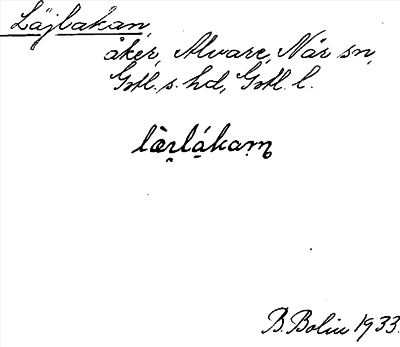 Läjlakan,
åker, Alvare, När sn,
Gotl. s. hd, Gotl. l.
lärlákam
B. Bolin 1933.